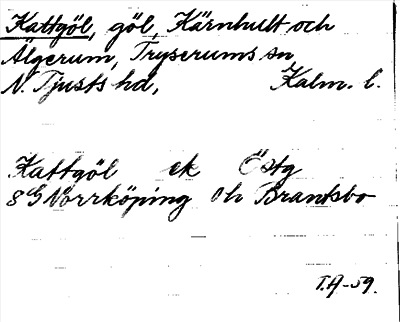 Kattgöl, göl, Kärnhult och
Älgerum, Tryserums sn
N. Tjusts hd, Kalm. l.
Kattgöl ek Östg
8G Norrköping 0h Brantsbo
T.A-59.